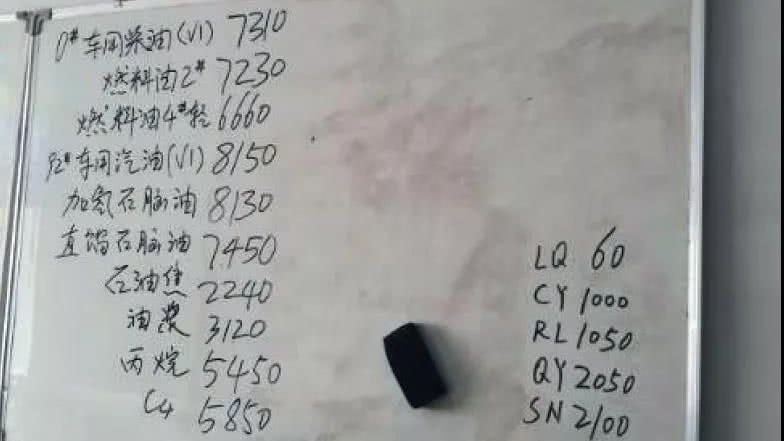 0#车用柴油(VI) 7310
燃料油2# 7230
燃料油4#轻 6660
92#车用汽油(VI) 8150
加氢石脑油 8130
直馏石脑油 7450
石油焦 2240
油浆 3120
丙烷 5450
C4 5850
LQ 60
CY 1000
RL 1050
QY 2050
SN 2100